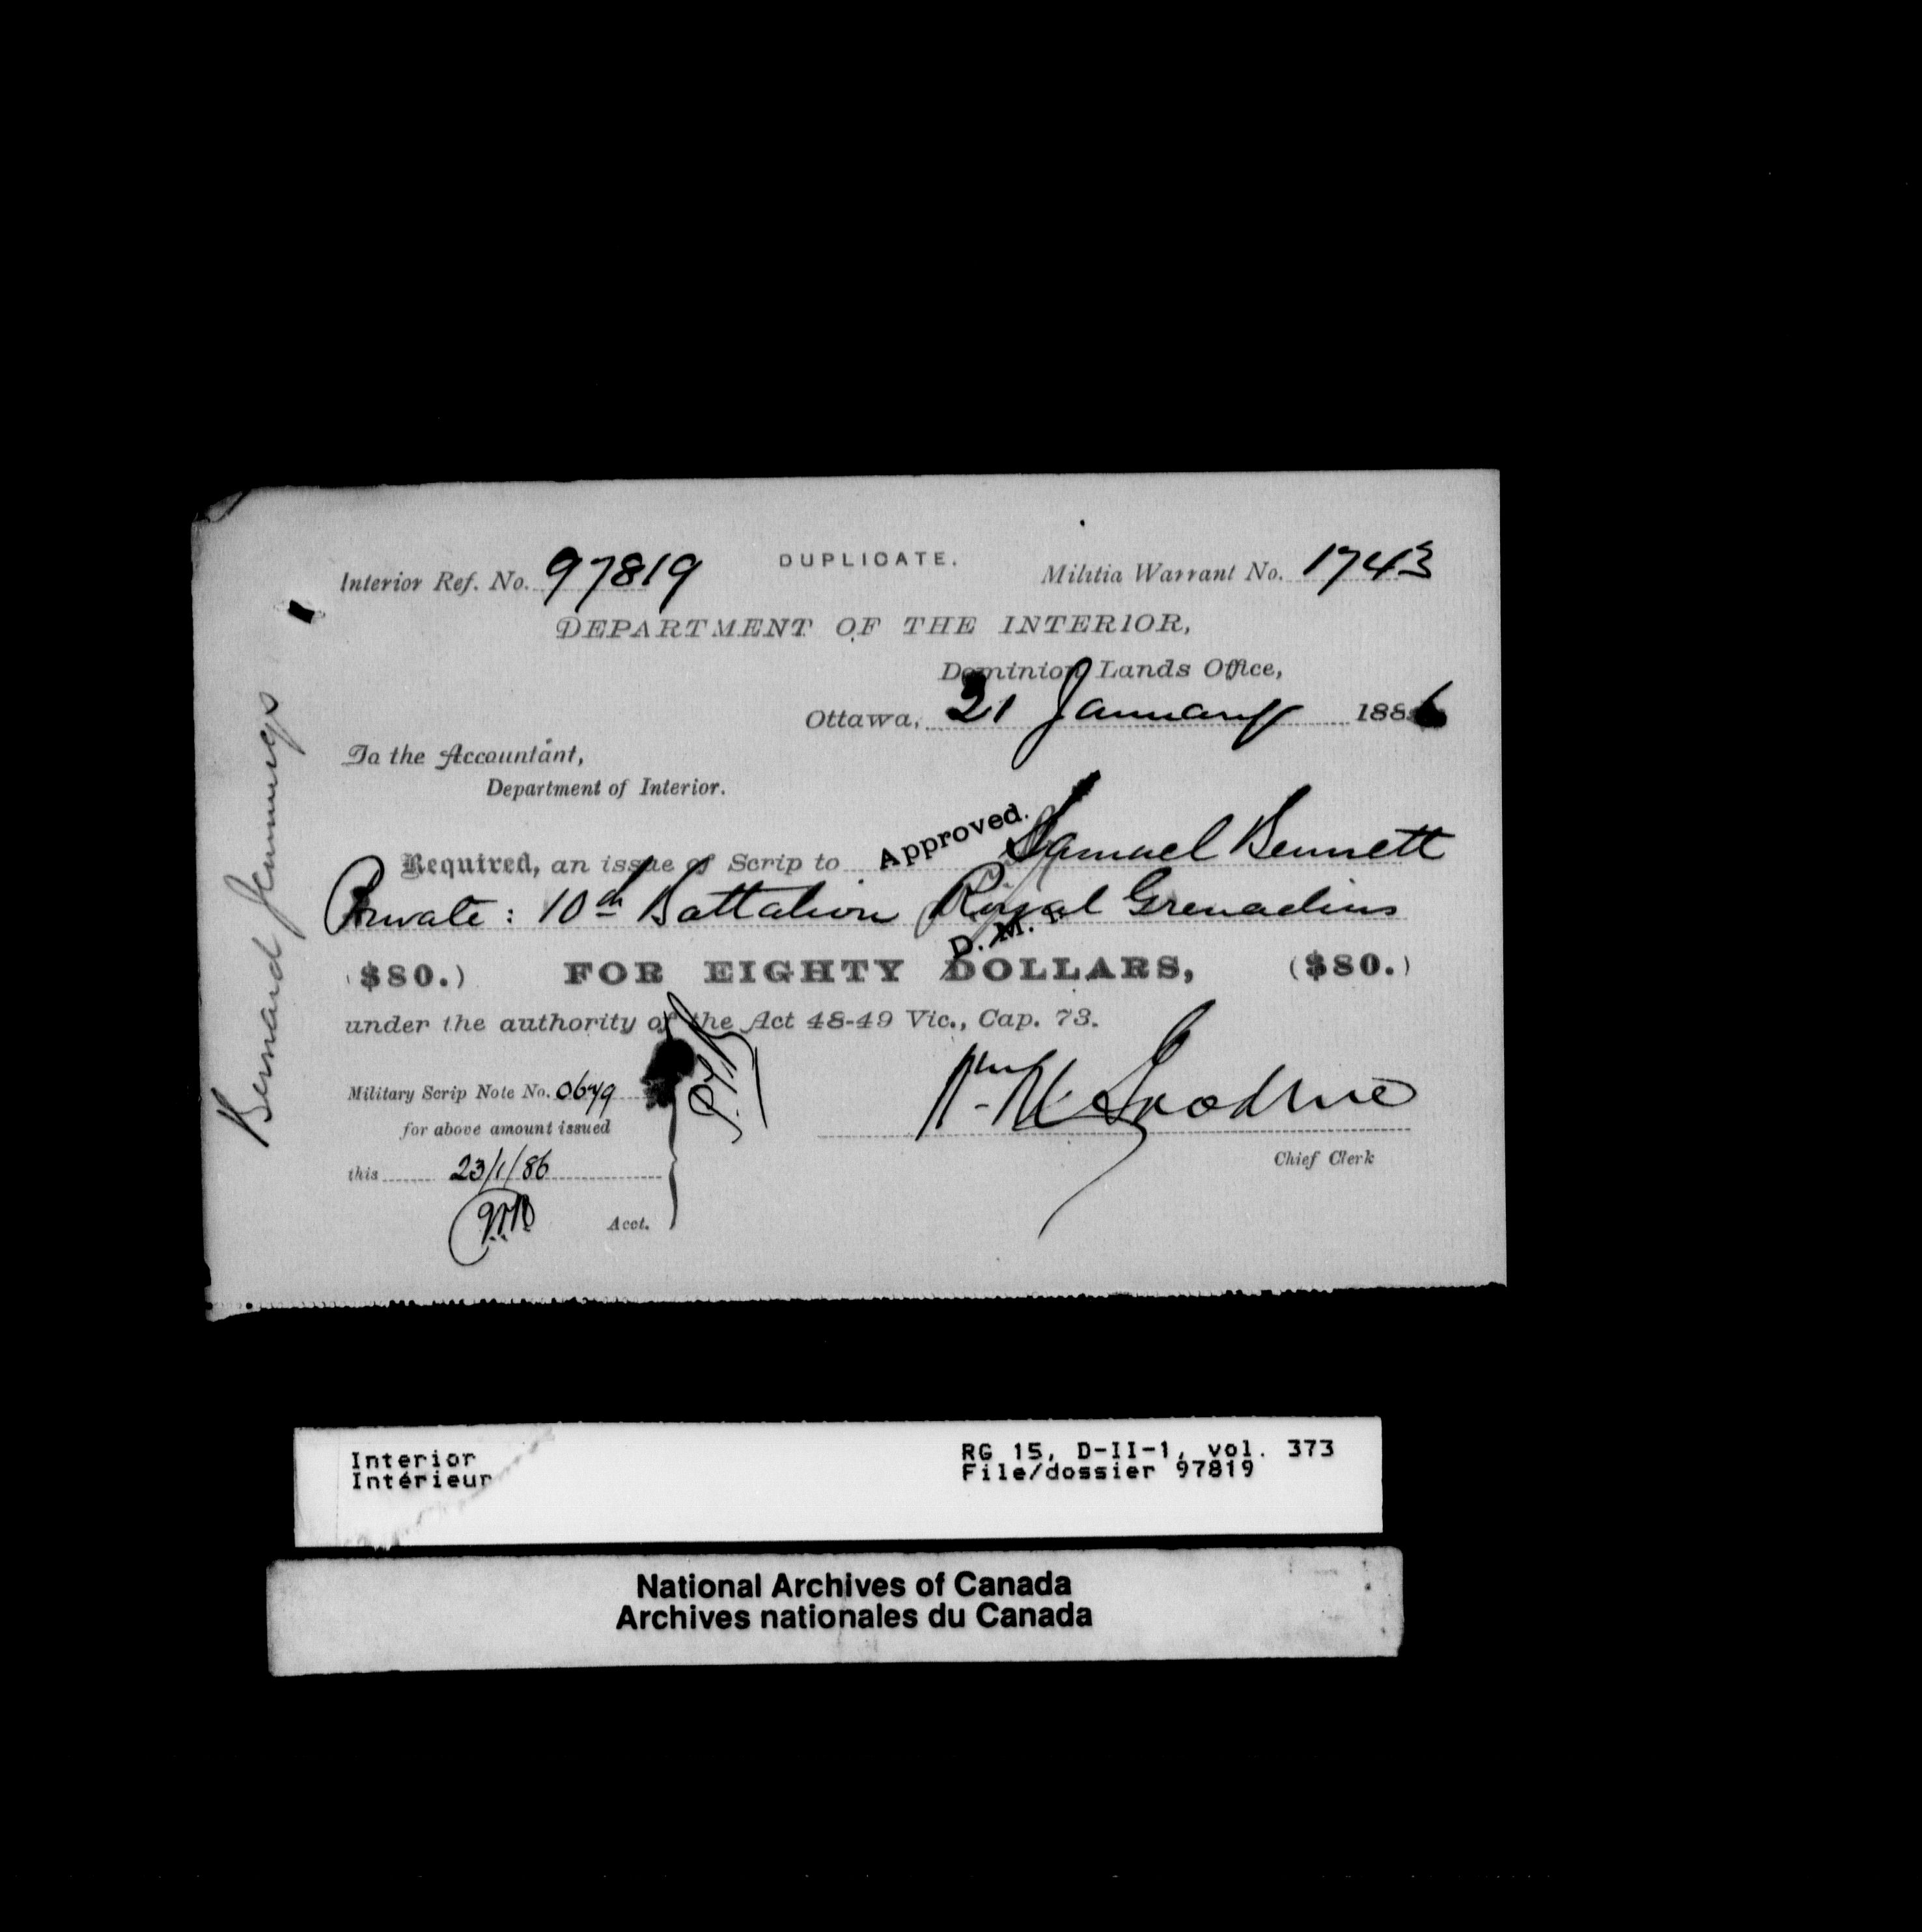 DUPLICATE.
Interior Ref. No. 97819
Militia Warrant No. 1743
DEPARTMENT OF THE INTERIOR,
Dominion Lands Office,
Ottawa, 21 January 1886
To the Accountant,
Department of Interior.
Approved.
Required, an issue of Scrip to Samuel Bennett
Private : 10th Battalion Royal Grenadiers
D. M. I.
($80.) FOR EIGHTY DOLLARS, ($80.)
under the authority of the Act 48-49 Vic., Cap. 73.
Military Scrip Note No. 0679
for above amount issued
this 23/1/86
Acct.
Chief Clerk
Bernard Jennings
Interior
Intérieur
RG 15, D-II-1, vol. 373
File/dossier 97819
National Archives of Canada
Archives nationales du Canada